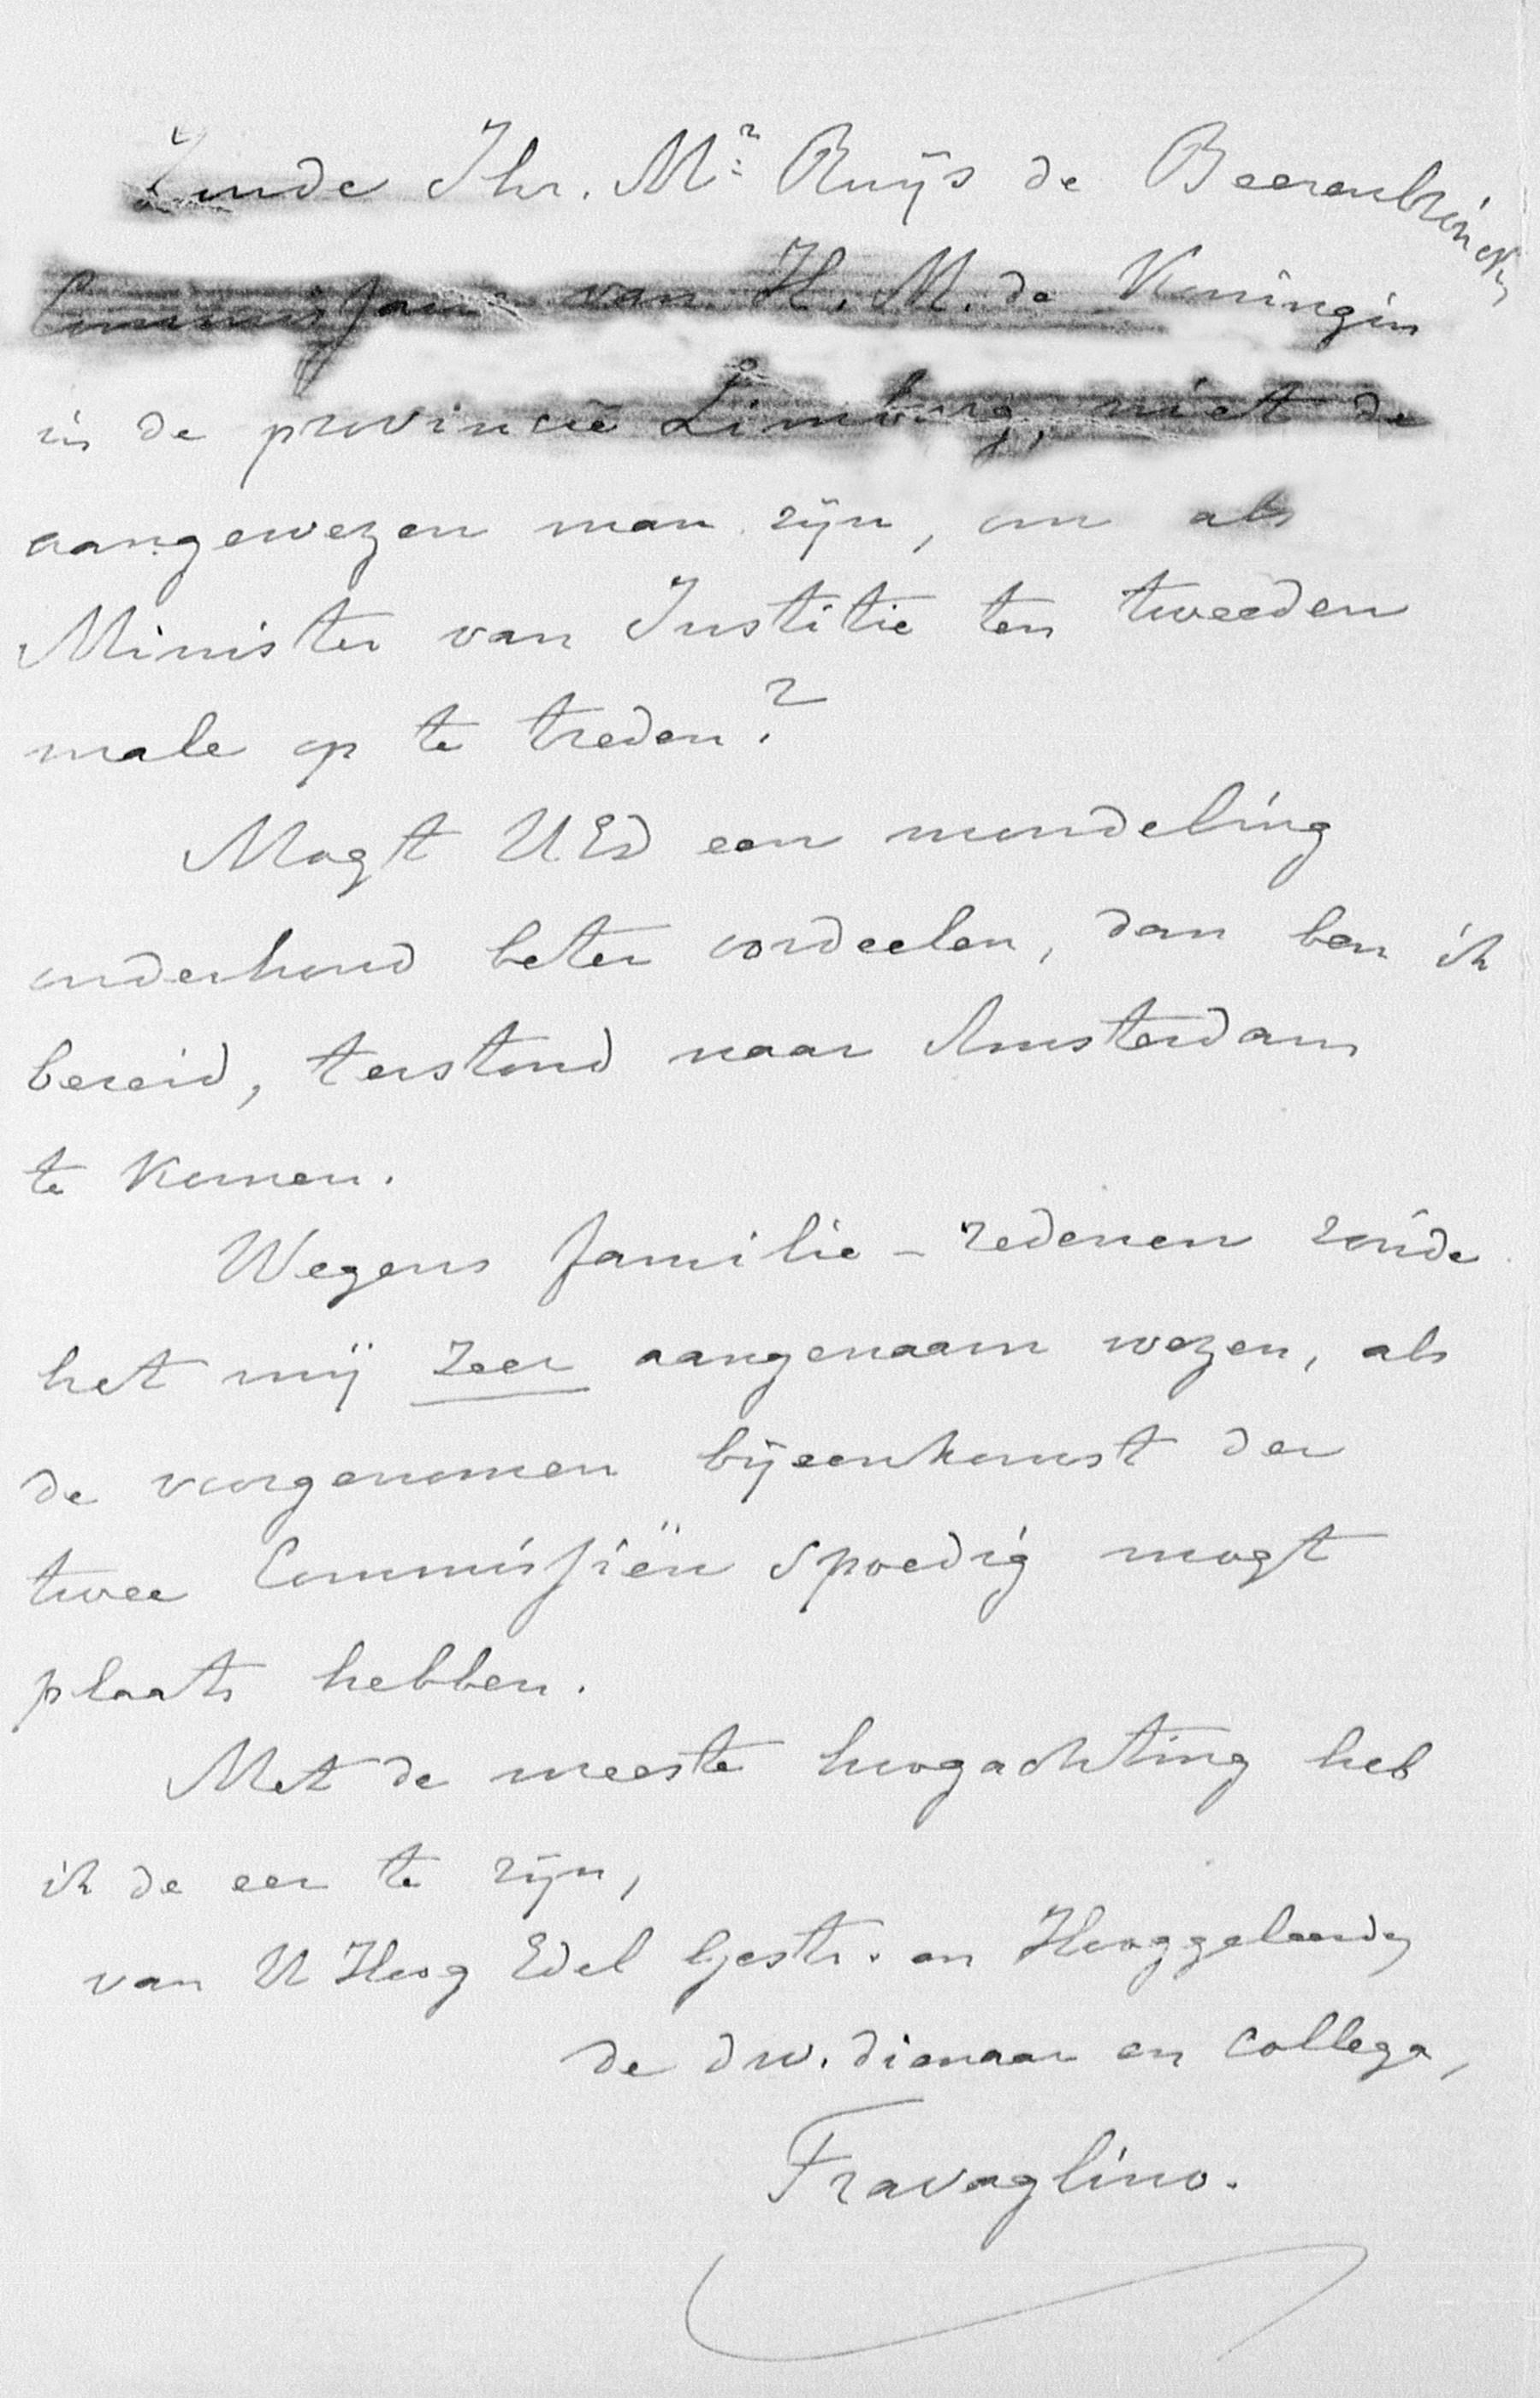 Zoude Jhr. Mr. Ruijs de Beerenbrouck,
Commissaris van H. M. de Koningin
in de provincie Limburg, niet de
aangewezen man zijn, om als
Minister van Justitie ten tweeden
male op te treden?
Mogt UEd een mondeling
onderhoud beter oordeelen, dan ben ik
bereid, terstond naar Amsterdam
te komen.
Wegens familie-redenen zoude
het mij zeer aangenaam wezen, als
de voorgenomen bijeenkomst der
twee Commissiën spoedig mogt
plaats hebben.
Met de meeste hoogachting heb
ik de eer te zijn,
van U Hoog Edel Gestr. en Hooggeleerde
de dw. dienaar en collega,
Travaglino.